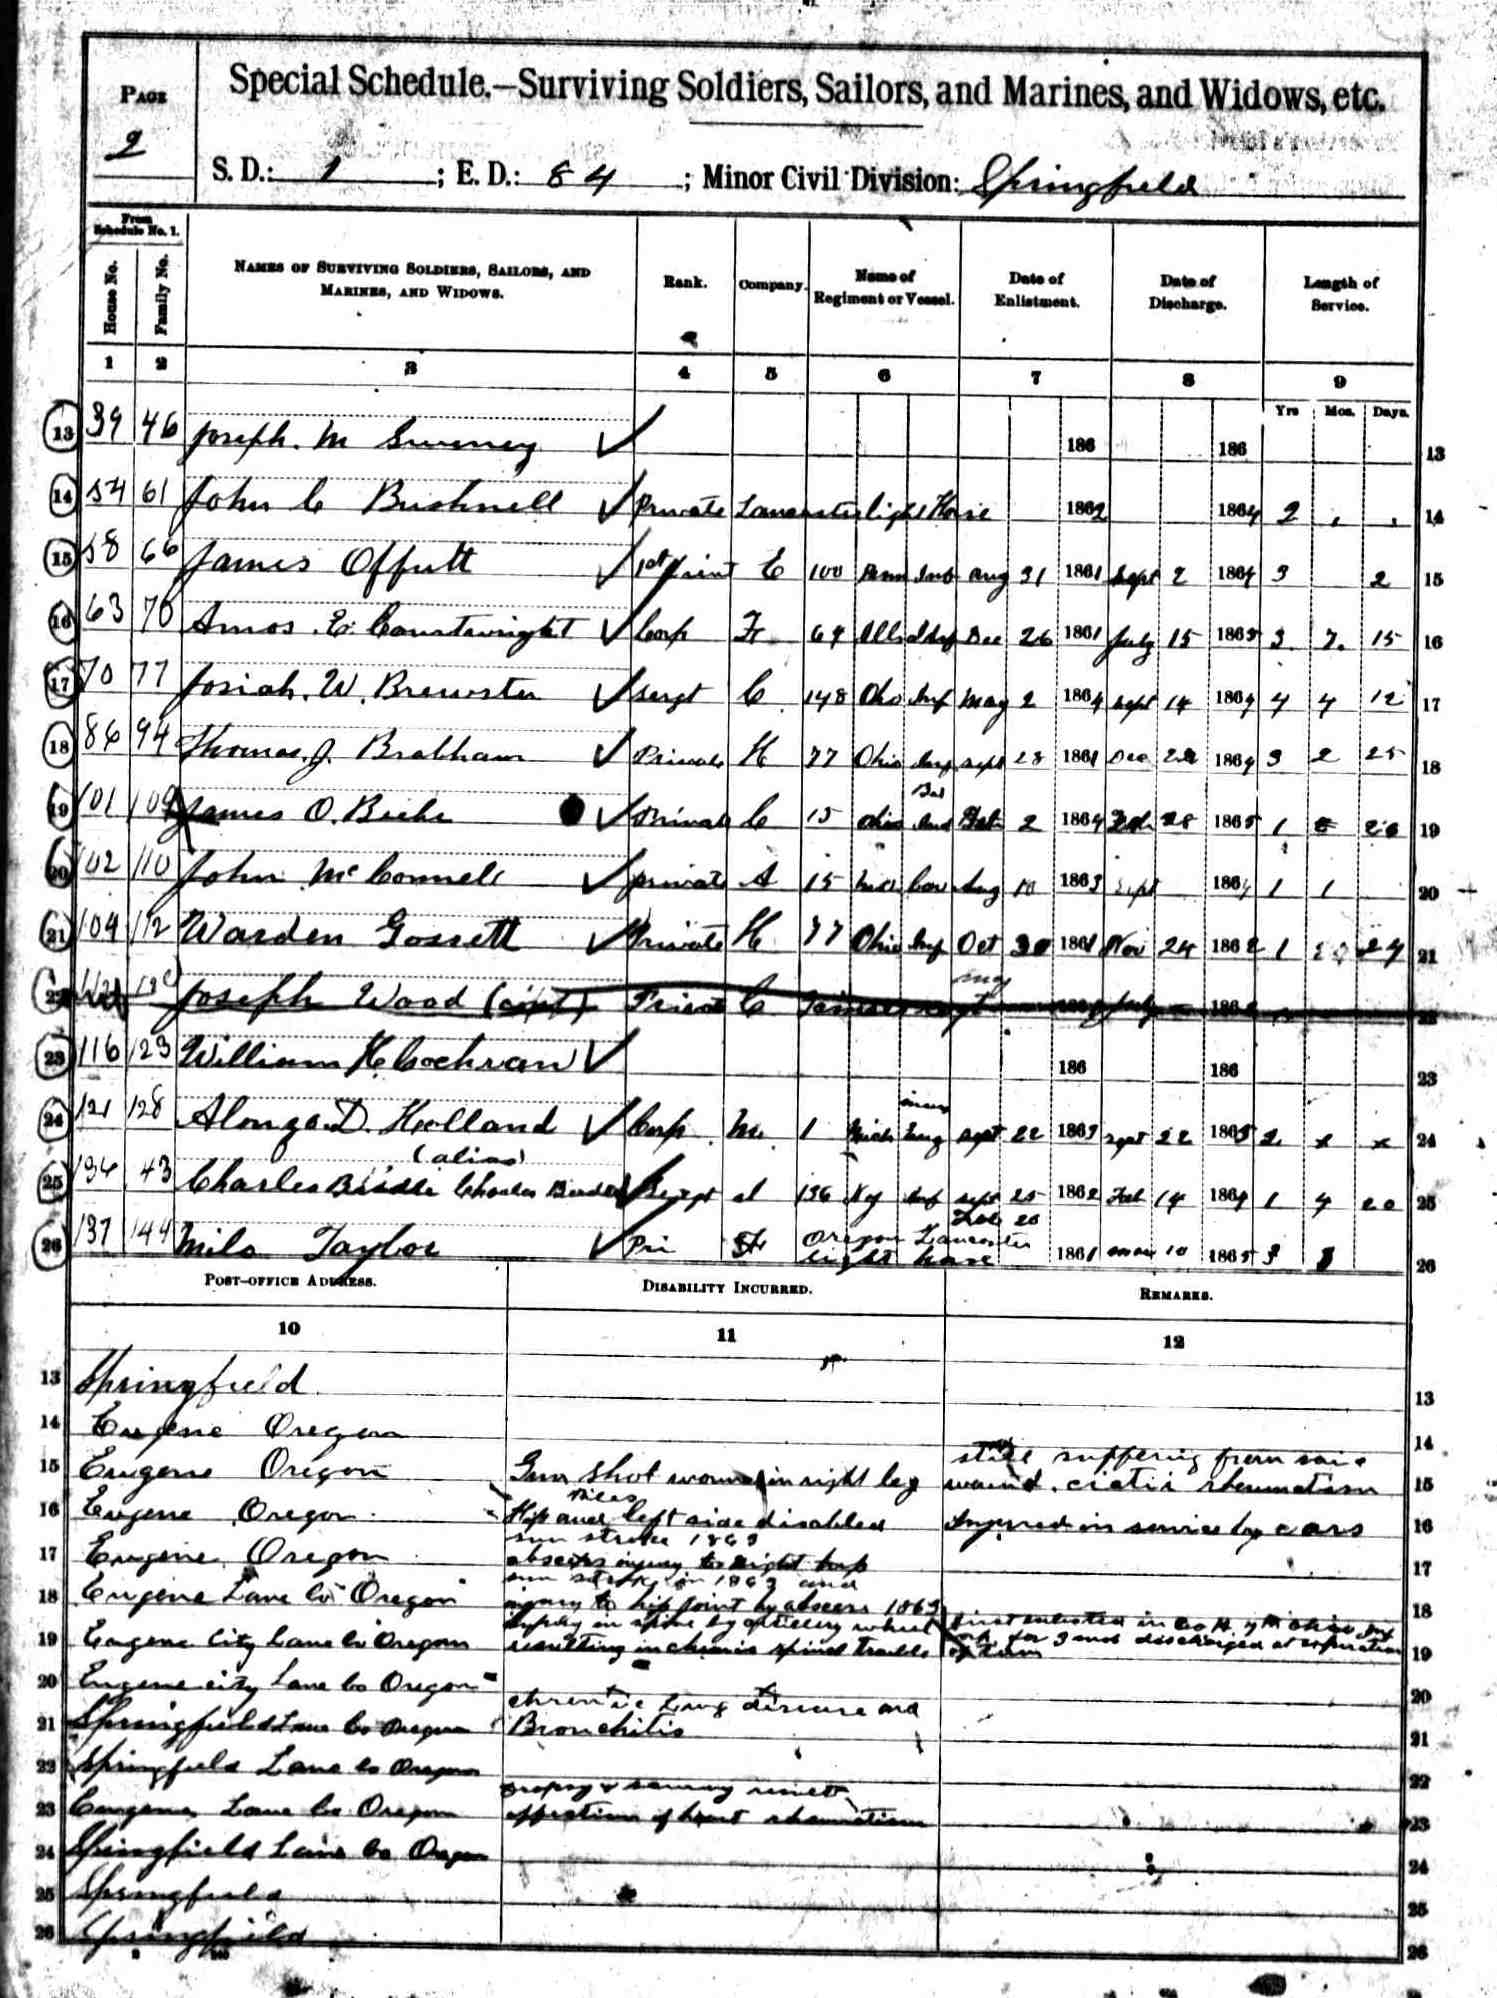 PAGE
2
Special Schedule.—Surviving Soldiers, Sailors, and Marines, and Widows, etc.
S. D.: 1 ; E. D.: 84 ; Minor Civil Division: Springfield
From Schedule No. 1.
House No.
Family No.
NAMES OF SURVIVING SOLDIERS, SAILORS, AND MARINES, AND WIDOWS.
Rank.
Company.
Name of Regiment or Vessel.
Date of Enlistment.
Date of Discharge.
Length of Service.
1 2 3 4 5 6 7 8 9
Yrs Mos. Days.
13 39 46 Joseph. M Sweeney 186 186 13
14 54 61 John C Bushnell Private Lancaster light Horse 1862 1864 2 14
15 58 66 James Offutt E 100 Penn Inf Aug 31 1861 Sept 2 1864 3 2 15
16 63 70 Amos. E. Courtwright Corp F Dec 26 1861 July 15 1865 3. 7. 15 16
17 70 77 Josiah. W. Brewster Sergt C 148 Oho Inf May 2 1864 Sept 14 1864 4 4 12 17
18 86 94 Thomas. J. Brabham Private H 77 Ohio Inf Sept 28 1861 Dec 1864 3 2 25 18
19 101 109 James O. Private C 15 Ohio Bat 2 1864 28 1865 1 19
20 102 110 John McConnell private A 15 Cav Aug 10 1863 Sept 1864 1 1 20
21 104 112 Warden Gossett Private H 77 Ohio Inf Oct 30 1861 Nov 24 1862 1 21
22 Joseph Wood C July 22
23 116 123 William H. Cochran 186 186 23
24 121 128 Alonzo D. Holland Corp M. 1 Mich Eng Sept 22 1863 Sept 22 1865 2 x x 24
(alias)
25 136 43 Charles Charles Sergt 136 Ny Inf Sept 25 1862 Feb 14 1864 1 4 20 25
26 137 144 Milo Taylor Pri Oregon Lancaster light horse 1861 10 1865 3 26
POST-OFFICE ADDRESS.
DISABILITY INCURRED.
REMARKS.
10 11 12
13 Springfield 13
14 Eugene Oregon 14
15 Eugene Oregon Gun shot wound in right leg still suffering from said wound. rheumatism 15
16 Eugene Oregon Piles Hip and left side disabled Injured in service by cars 16
17 Eugene, Oregon sun stroke 1863 abscess injury to right hip 17
18 Eugene Lane Co Oregon sun stroke in 1863 and injury to hip joint by abscess 1863 18
19 Eugene City Lane Co Oregon injury in spine by artillery wheel resulting in chronic spinal trouble first enlisted in Co H. Ohio Inf for 3 and discharged at expiration of term 19
20 Eugene city Lane Co Oregon 20
21 Springfield Lane Co Oregon chronic Lung disease and Bronchitis 21
22 Springfield Lane Co Oregon 22
23 Eugene Lane Co Oregon affection of heart rheumatism 23
24 Springfield Lane Co Oregon 24
25 Springfield 25
26 Springfield 26